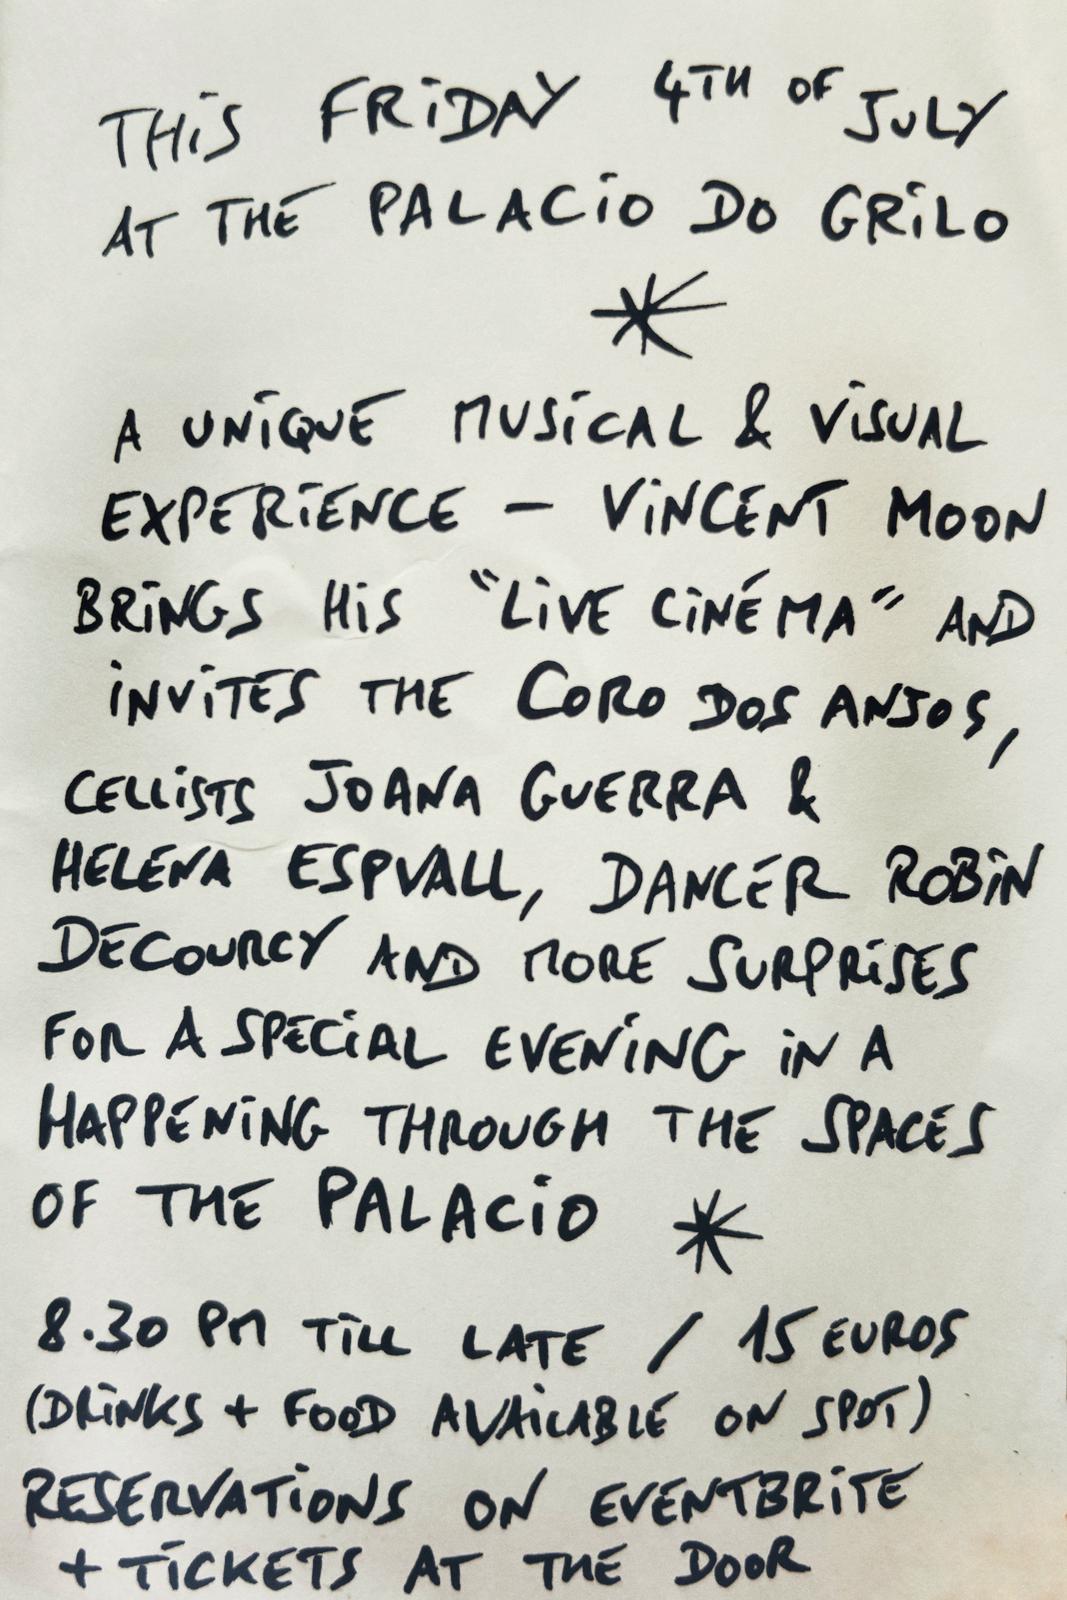 THiS FRiDAY 4TH OF JULY
AT THE PALACiO DO GRiLO
A UNiQUE MUSiCAL & ViSUAL
EXPERiENCE - ViNCENT MOON
BRiNGS HiS "LiVE CiNÉMA" AND
iNViTES THE CORO DOS ANJOS,
CELLiSTS JOANA GUERRA &
HELENA ESPVALL, DANCER ROBiN
DECOURCY AND MORE SURPRiSES
FOR A SPECiAL EVENiNG iN A
HAPPENiNG THROUGH THE SPACES
OF THE PALACiO
8.30 PM TiLL LATE / 15 EUROS
(DRiNKS + FOOD AVAiLABLE ON SPOT)
RESERVATiONS ON EVENTBRiTE
+ TiCKETS AT THE DOOR